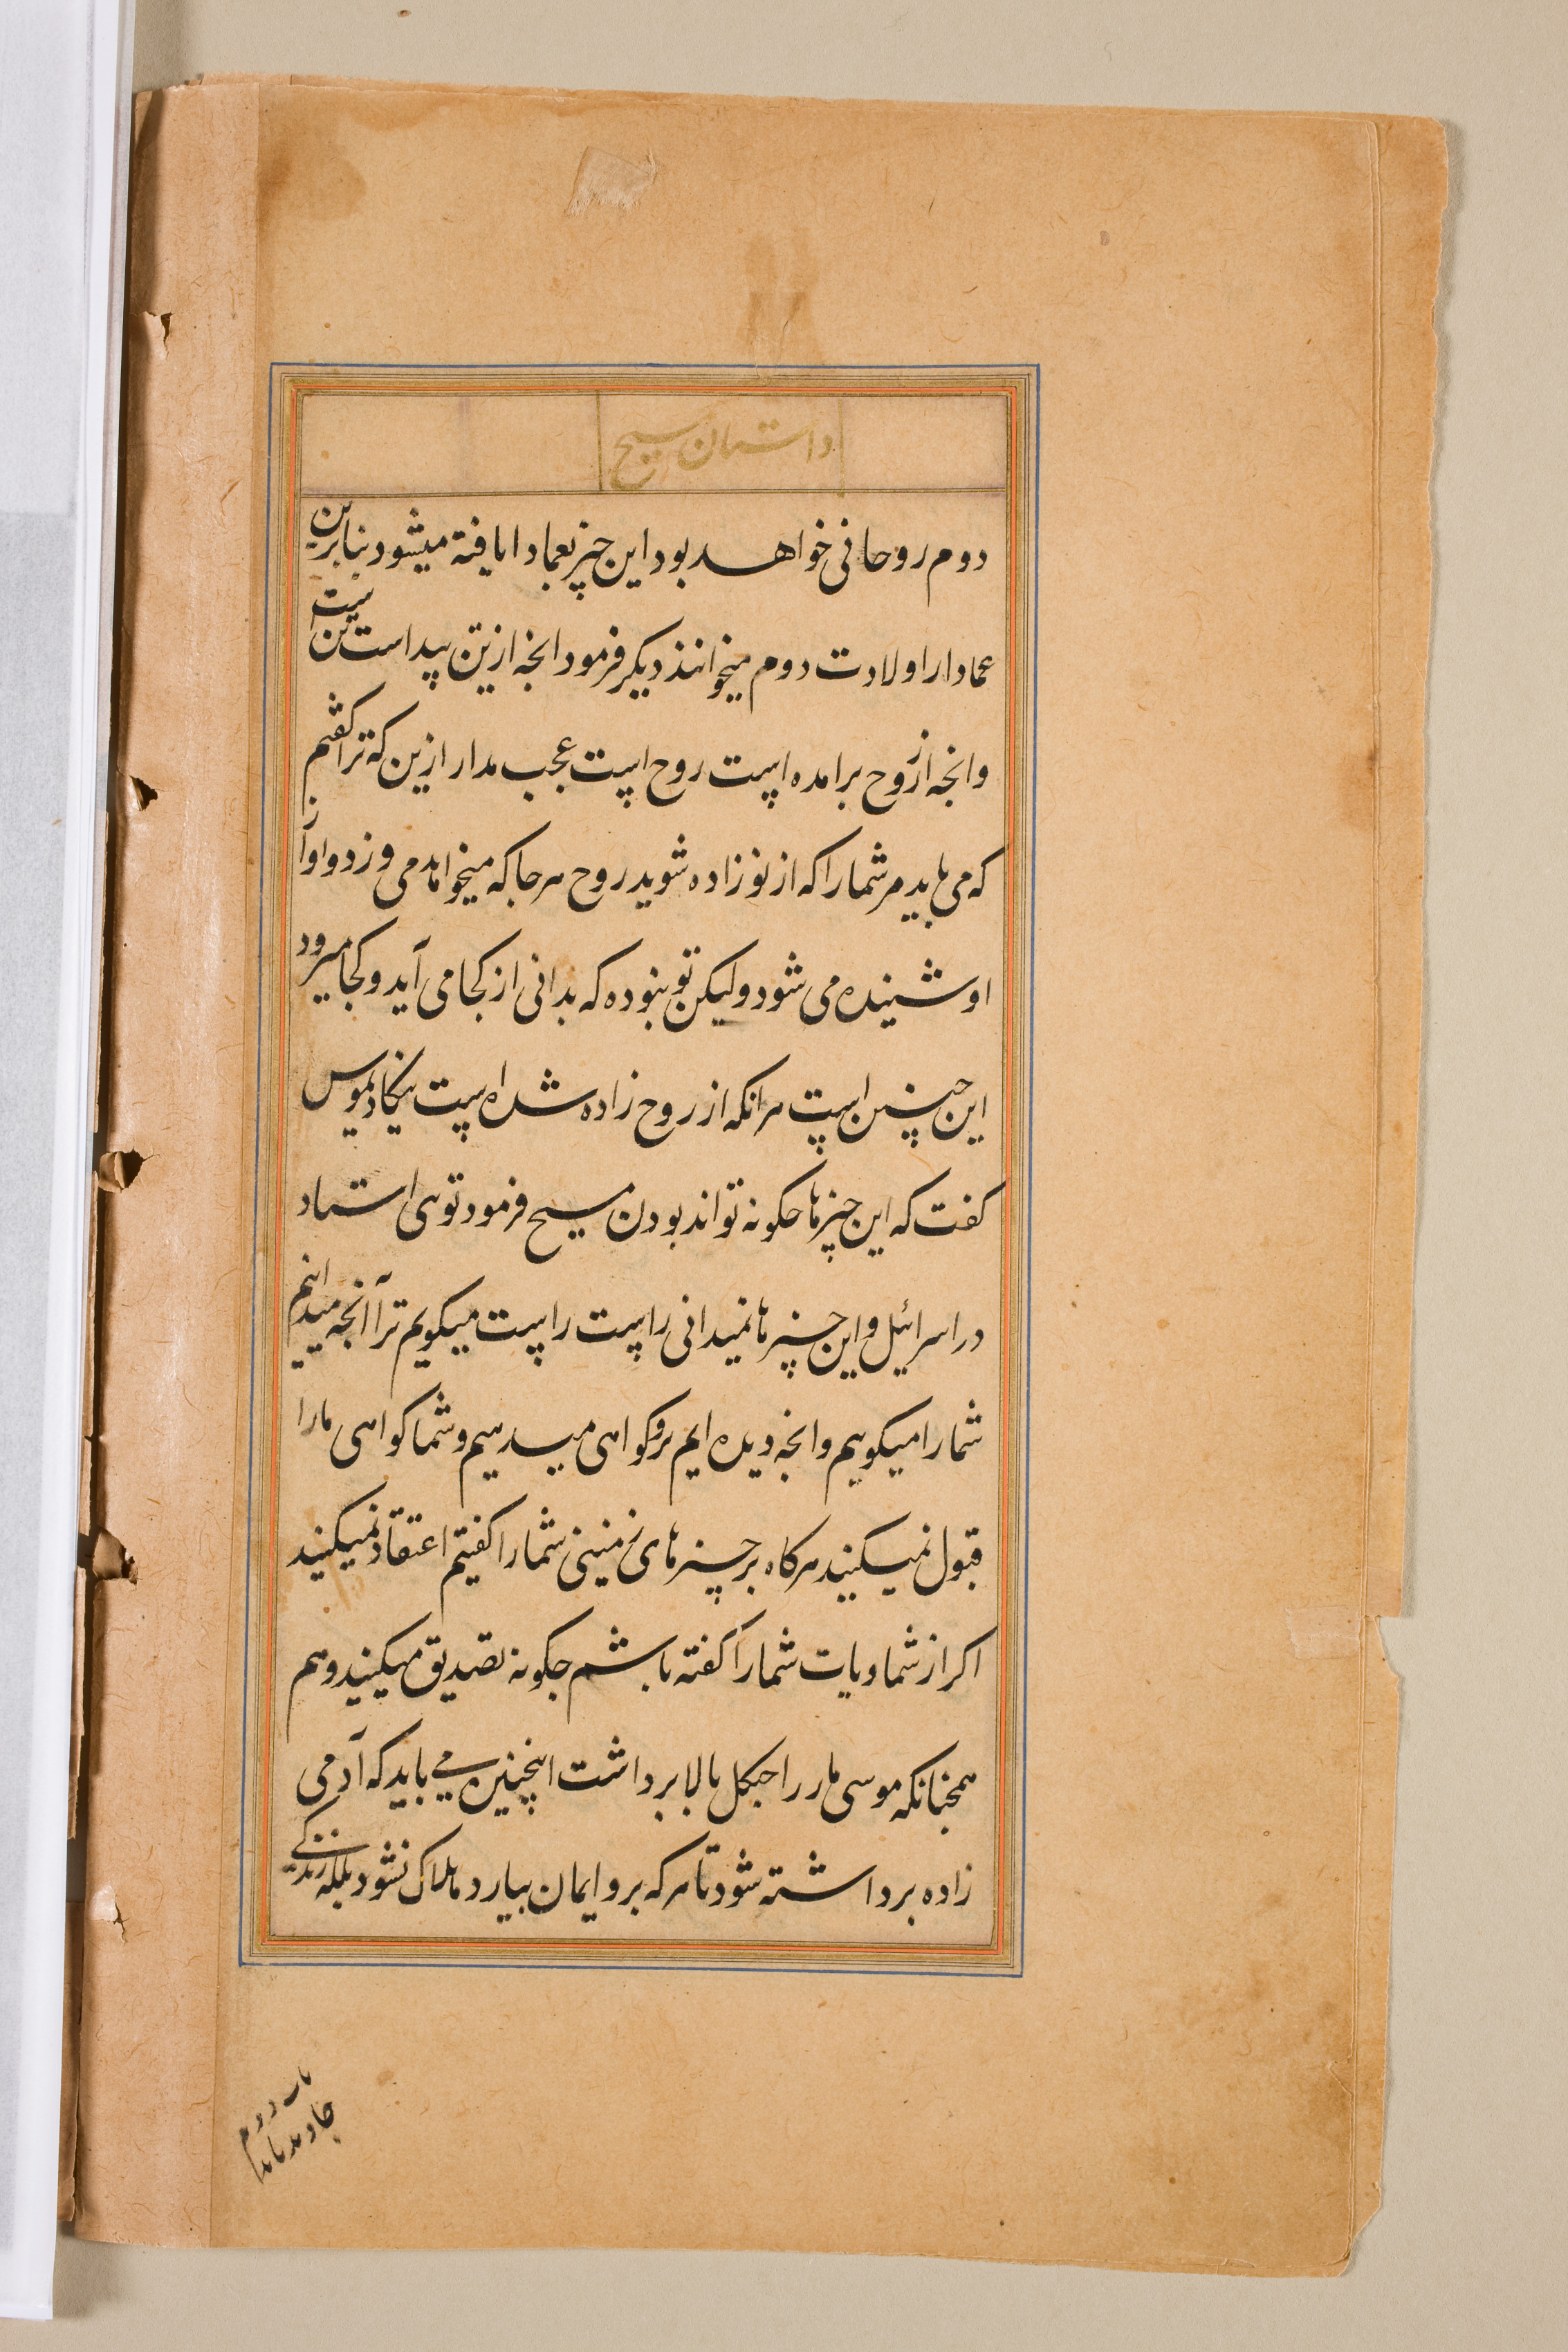 داستان مسیح
دوم روحانی خواهد بود این چیز بعمادا یافته میشود بنابرین
عمادا را ولادت دوم میخوانند دیکر فرمود انچه ازین تن پیداست تن است
وانچه از روح برامده است روح است عجب مدار ازین که ترا کفتم
که می باید مر شما را که از نو زاده شوید روح هر جا که میخواهد می وزد و اواز
او شنیده می شود ولیکن تو نبوده که بدانی از کجا می آید و کجا میرود
این چنین است هر انکه از روح زاده شده است نیکادیموس
کفت که این چیزها چکونه تواند بودن مسیح فرمود توی استاد
در اسرائیل و این چیزها نمیدانی راست راست میکویم ترا آنچه میدانیم
شما را میکوییم وانچه دیده ایم برو کواهی میدهیم و شما کواهی ما را
قبول نمیکنید هرکاه بر چیزهای زمینی شما را کفتیم اعتقاد نمیکنید
اکر از سماویات شما را کفته باشم چکونه تصدیق میکنید و هم
همچنانکه موسی مار را جنکل بالا برداشت اینچنین می باید که آدمی
زاده برداشته شود تا هر که برو ایمان بیارد هلاک نشود بلکه زندکی
باب دوم